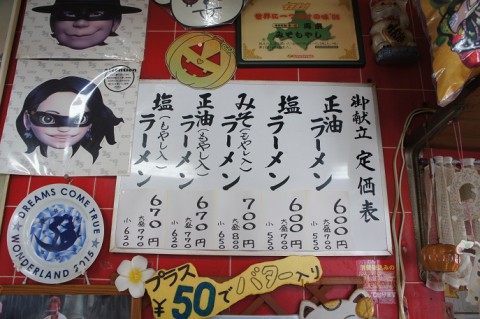 世界に一つだけの味'05
みそもやし
御献立 定価表
正油ラーメン 600円 大盛 700 小 550
塩ラーメン 600円 大盛 700 小 550
みそ(もやし入)ラーメン 700円 大盛 800
正油(もやし入)ラーメン 670円 大盛 770 小 620
塩(もやし入)ラーメン 670円 大盛 770 小 620
DREAMS COME TRUE
WONDERLAND 2015
プラス
¥50でバター入り